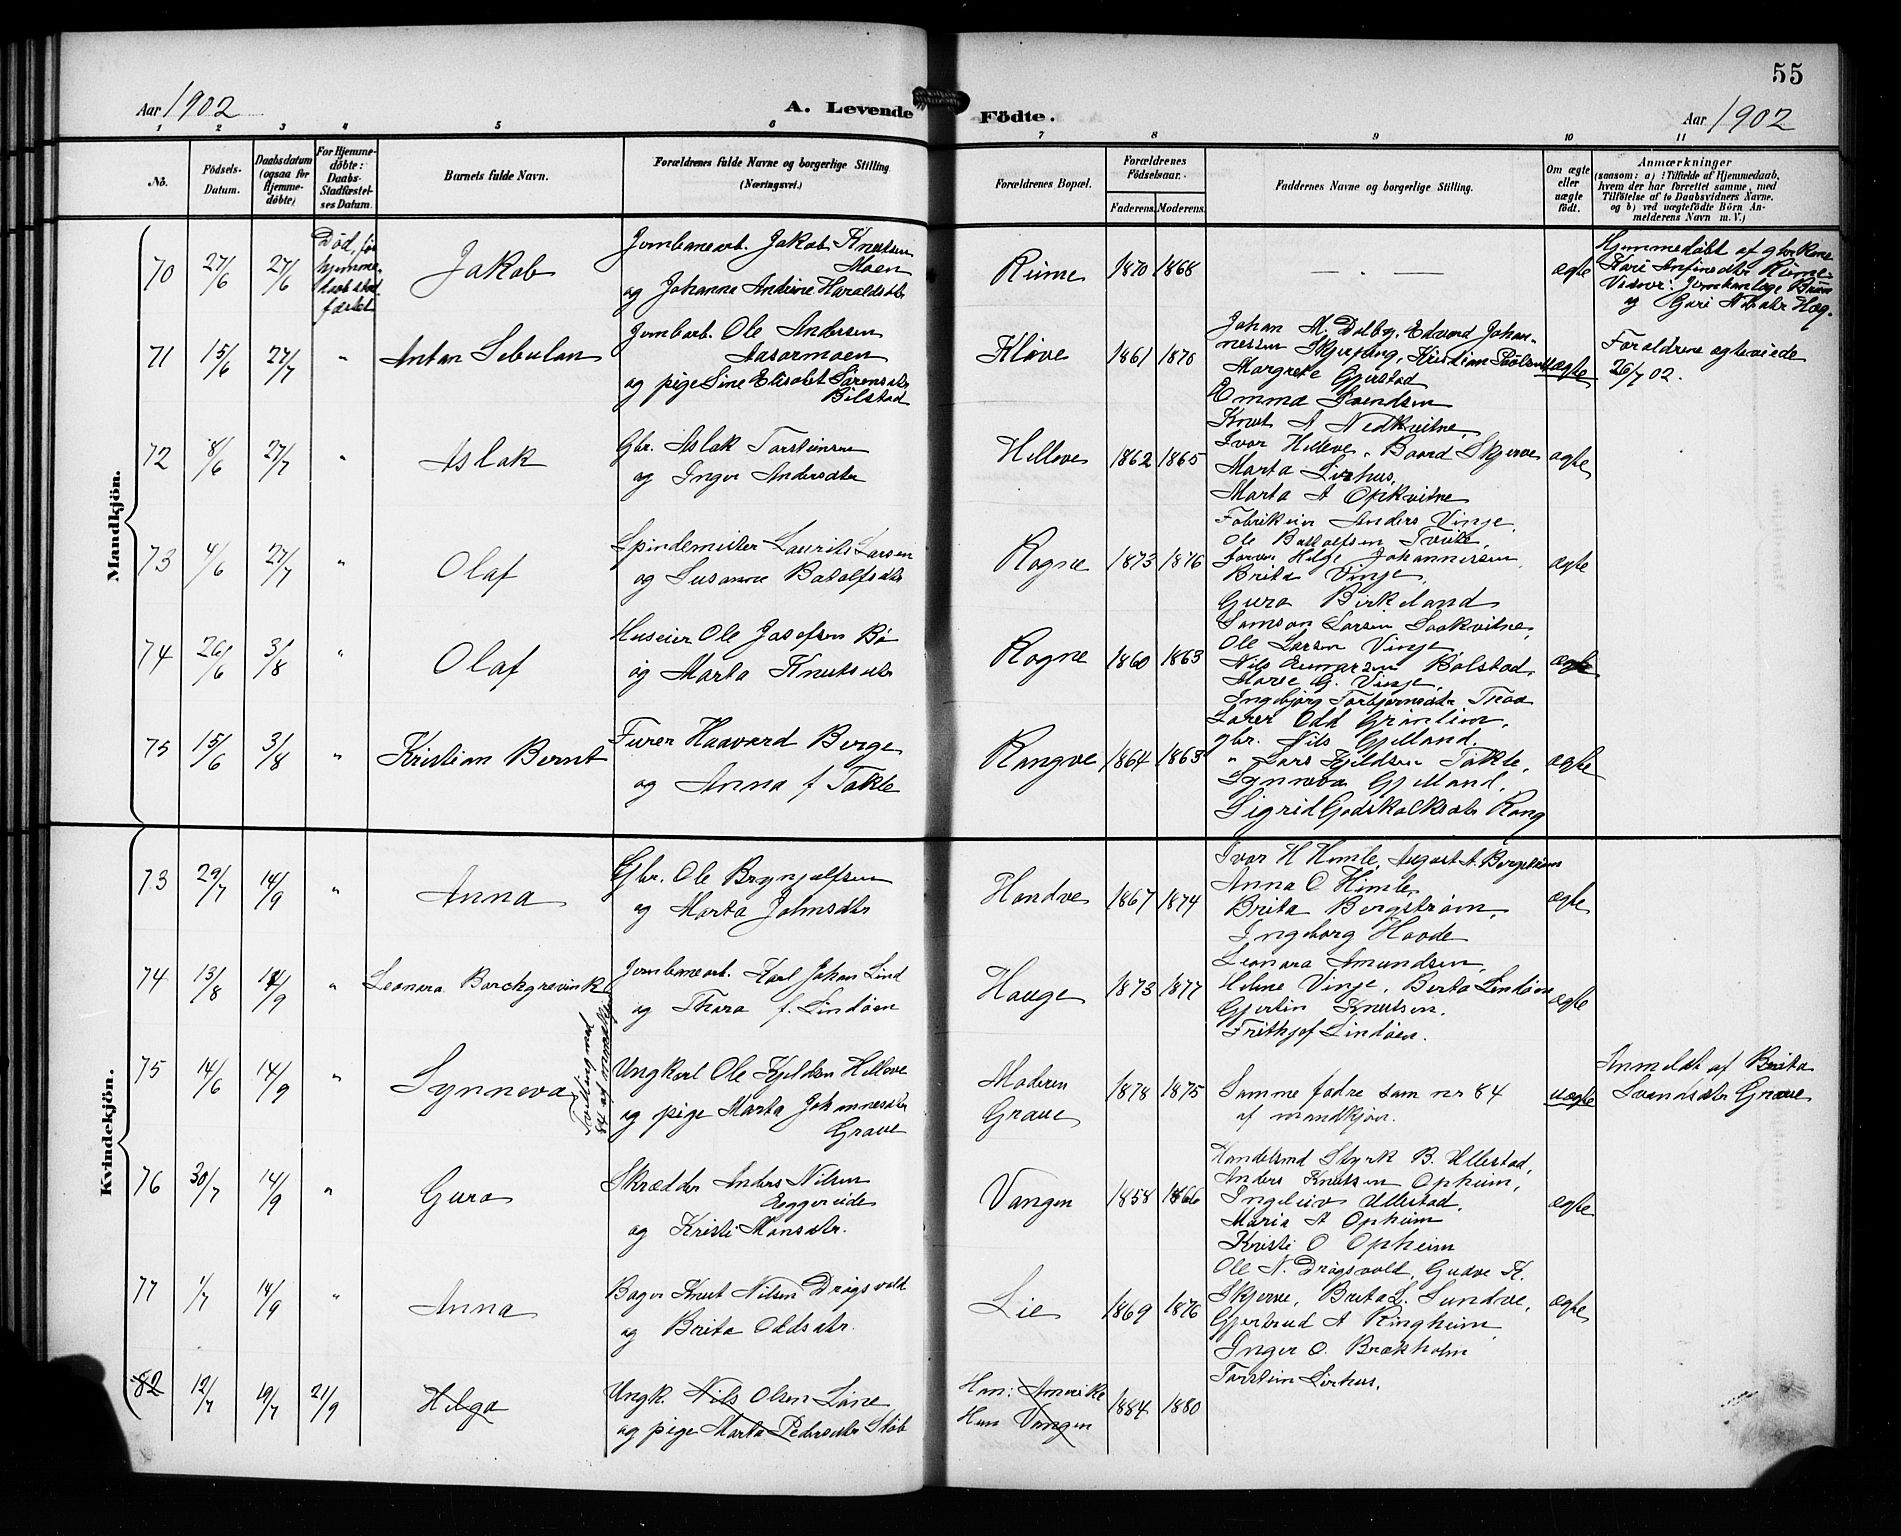 55
Aar 1902
A. Levende Födte.
Aar 1902
1 2 3 4 5 6 7 8 9 10 11
No.
Födsels-Datum.
Daabsdatum (ogsaa for Hjemme-döbte)
For Hjemme-döbte: Daabs-Stadfæstel-ses Datum.
Barnets fulde Navn.
Forældrenes fulde Navne og borgerlige Stilling.
(Næringsvei.)
Forældrenes Bopæl.
Forældrenes Födselsaar.
Faderens. Moderens.
Faddernes Navne og borgerlige Stilling.
Om ægte eller uægte födt.
Anmærkninger
(saasom: a) i Tilfælde af Hjemmedaab,
hvem der har forrettet samme, med
Tilföielse af to Daabsvidners Navne,
og b) ved uægtefödte Börn An-
melderens Navn m. V.)
Mandkjön.
70 27/6 27/6
Død, før
hjemme-
daab stad
fæstet
Jakob
Jernbanearb. Jakob Knutsen
Moen
og Johanne Andrine Haraldsdtr
Rume 1870 1868 — - — ægte
Hjemmedøbt af gbr. Kone
Kari Anfinsdtr Rume
71 15/6 27/7 " Anton Sebulon
Jernbarb. Ole Andersen
Aasarmoen
og pige Sine Elisabet Sørensdtr
Bilstad
Kløve 1861 1870
Johan M. Dalby, Edvard Johan-
nessen Skjerping, Kristian Paulsen
Margrete Gjerstad
Emma Svendsen
uægte
Foraldrene ægteviede
26/7 02.
72 8/6 27/7 " Aslak
Gbr. Aslak Torsteinsen
og Inger Andersdtr
Helleve 1862 1865
Knut A Nedkvitne
Ivar Helleve, Baard Skjerve
Marta Lirhus,
Marta A Opkvitne
ægte
73 4/6 27/7 " Olaf
Spindemester Laurits Larsen
og Susanne Botolfsdtr
Rogne 1873 1876
Fabrikeier Anders Vinje,
Ole Botolfsen Tveite,
farver Helge Johannessen
Brita Vinje,
Gura Birkeland
ægte
74 26/6 3/8 " Olaf
Huseier Ole Josefsen Bø
og Marta Knutsdtr
Rogne 1860 1863
Samson Larsen Saakvitne,
Ole Larsen Vinje
Nils Bølstad
Marie G. Vinje,
Ingebjørg Torbjørnsdtr
ægte
75 15/6 3/8 " Kristian Bernt
Furer Haavard Berge
og Anna f Takle
Rangve 1864 1863
Lærer Odd Grønlien,
gbr. Nils Gjelland,
" Lars Kjeldsen Takle,
Synneva Gjelland,
Sigrid Godskalksdtr Rong
ægte
Kvindekjön.
73 29/7 14/9 " Anna
Gbr. Ole Brynjulfsen
og Marta Johnsdtr
Hondve 1867 1874
Ivar H Himle, August A. Bergstrøm
Anna O Himle,
Brita Bergstrøm,
Ingeborg Haode
ægte
74 13/8 14/9 " Leonora Borchgrevink
Jernbanearb. Karl Johan Lind
og Thora f. Lindøen
Hauge 1873 1877
Leonora Amundsen,
Helene Vinje, Berta Lindøen
Gjertin Knutsen,
Frithjof Lindøen.
ægte
75 14/6 14/9 " Synneva
Tvilling med
84 af mandkjøn
Ungkarl Ole Kjeldsen Helleve
og pige Marta Johannesdtr
Grave
Moderen
Graue
1878 1875
Samme fadre som nr 84
af mandkjøn.
uægte
Anmeldt af Brita
Svendsdtr Graue
76 30/7 14/9 " Gura
Skrædder Anders Nilsen
Eggereide
og Kristi Monsdtr.
Vangen 1858 1866
Handelsmd Styrk B. Ullestad,
Anders Knutsen Opheim,
Ingeleiv Ullestad,
Maria A Opheim
Kristi O Opheim
ægte
77 1/7 14/9 " Anna
Bager Knut Nilsen Dragsvold
og Brita Oddsdtr.
Lie 1869 1876
Ole N. Dragsvold, Gudve K.
Skjerve, Brita L. Sundve,
Gjertrud A Ringheim
Inger O. Brækholm
Torstein Lirhus,
ægte
82 12/7 19/7 21/9 Helga
Ungk. Nils Olsen Lane
og pige Marta Pedersdtr
Han: Amerika
Hun Vangen
1884 1880